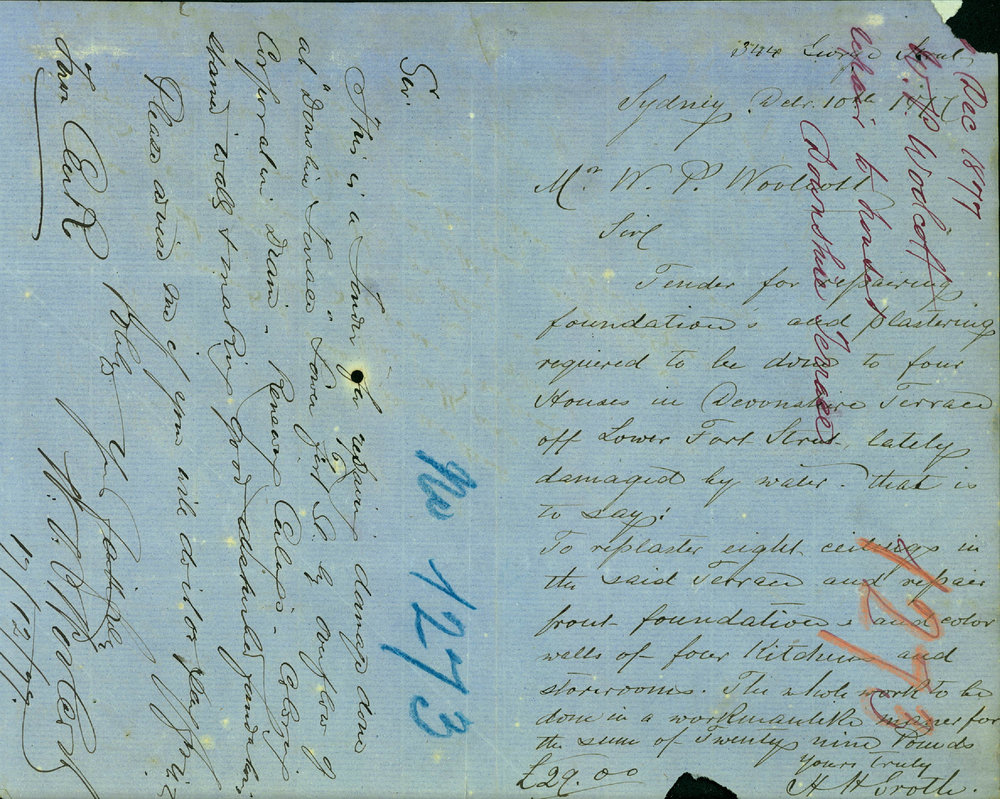 344 Street
Sydney Decr. 10th 1877
Mr W. P. Woolcott
Sir
Tender for repairing
foundation's and plastering
required to be done to four
Houses in Devonshire Terrace
off Lower Fort Street, lately
damaged by water. that is
to say:
To replaster eight ceilings in
the said Terrace and repair
front foundations and color
walls of four Kitchens and
storerooms. The whole work to be
done in a workmanlike maner for
the sum of Twenty nine Pounds
Yours truly
£29.00
Dec 1877
W. P. Woolcott
repair to houses
Downshire Terrace
1273
No 1273
Sir.
This is a Tender for repairing damage done
at "Donshire Terrace" Lower fort St. by overflow of
Corporation Drain - Renewing Ceilings - Coloring
stained walls & making good disturbed foundations
Please advise me if you will do it or
Yrs faithfully
Town Clerk
17/12/77